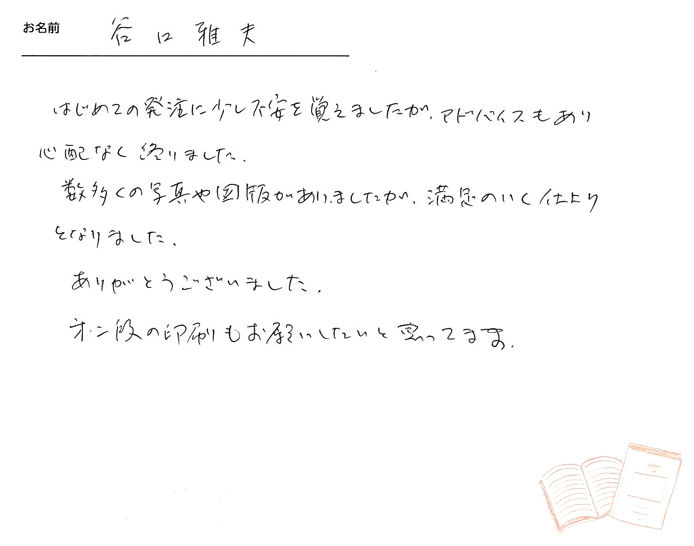 お名前 谷口雅夫
はじめての発注に少し不安を覚えましたが、アドバイスもあり
心配なく終りました。
数多くの写真や図版がありましたが、満足のいく仕上り
となりました。
ありがとうございました。
段の印刷もお願いしたいと思ってます。